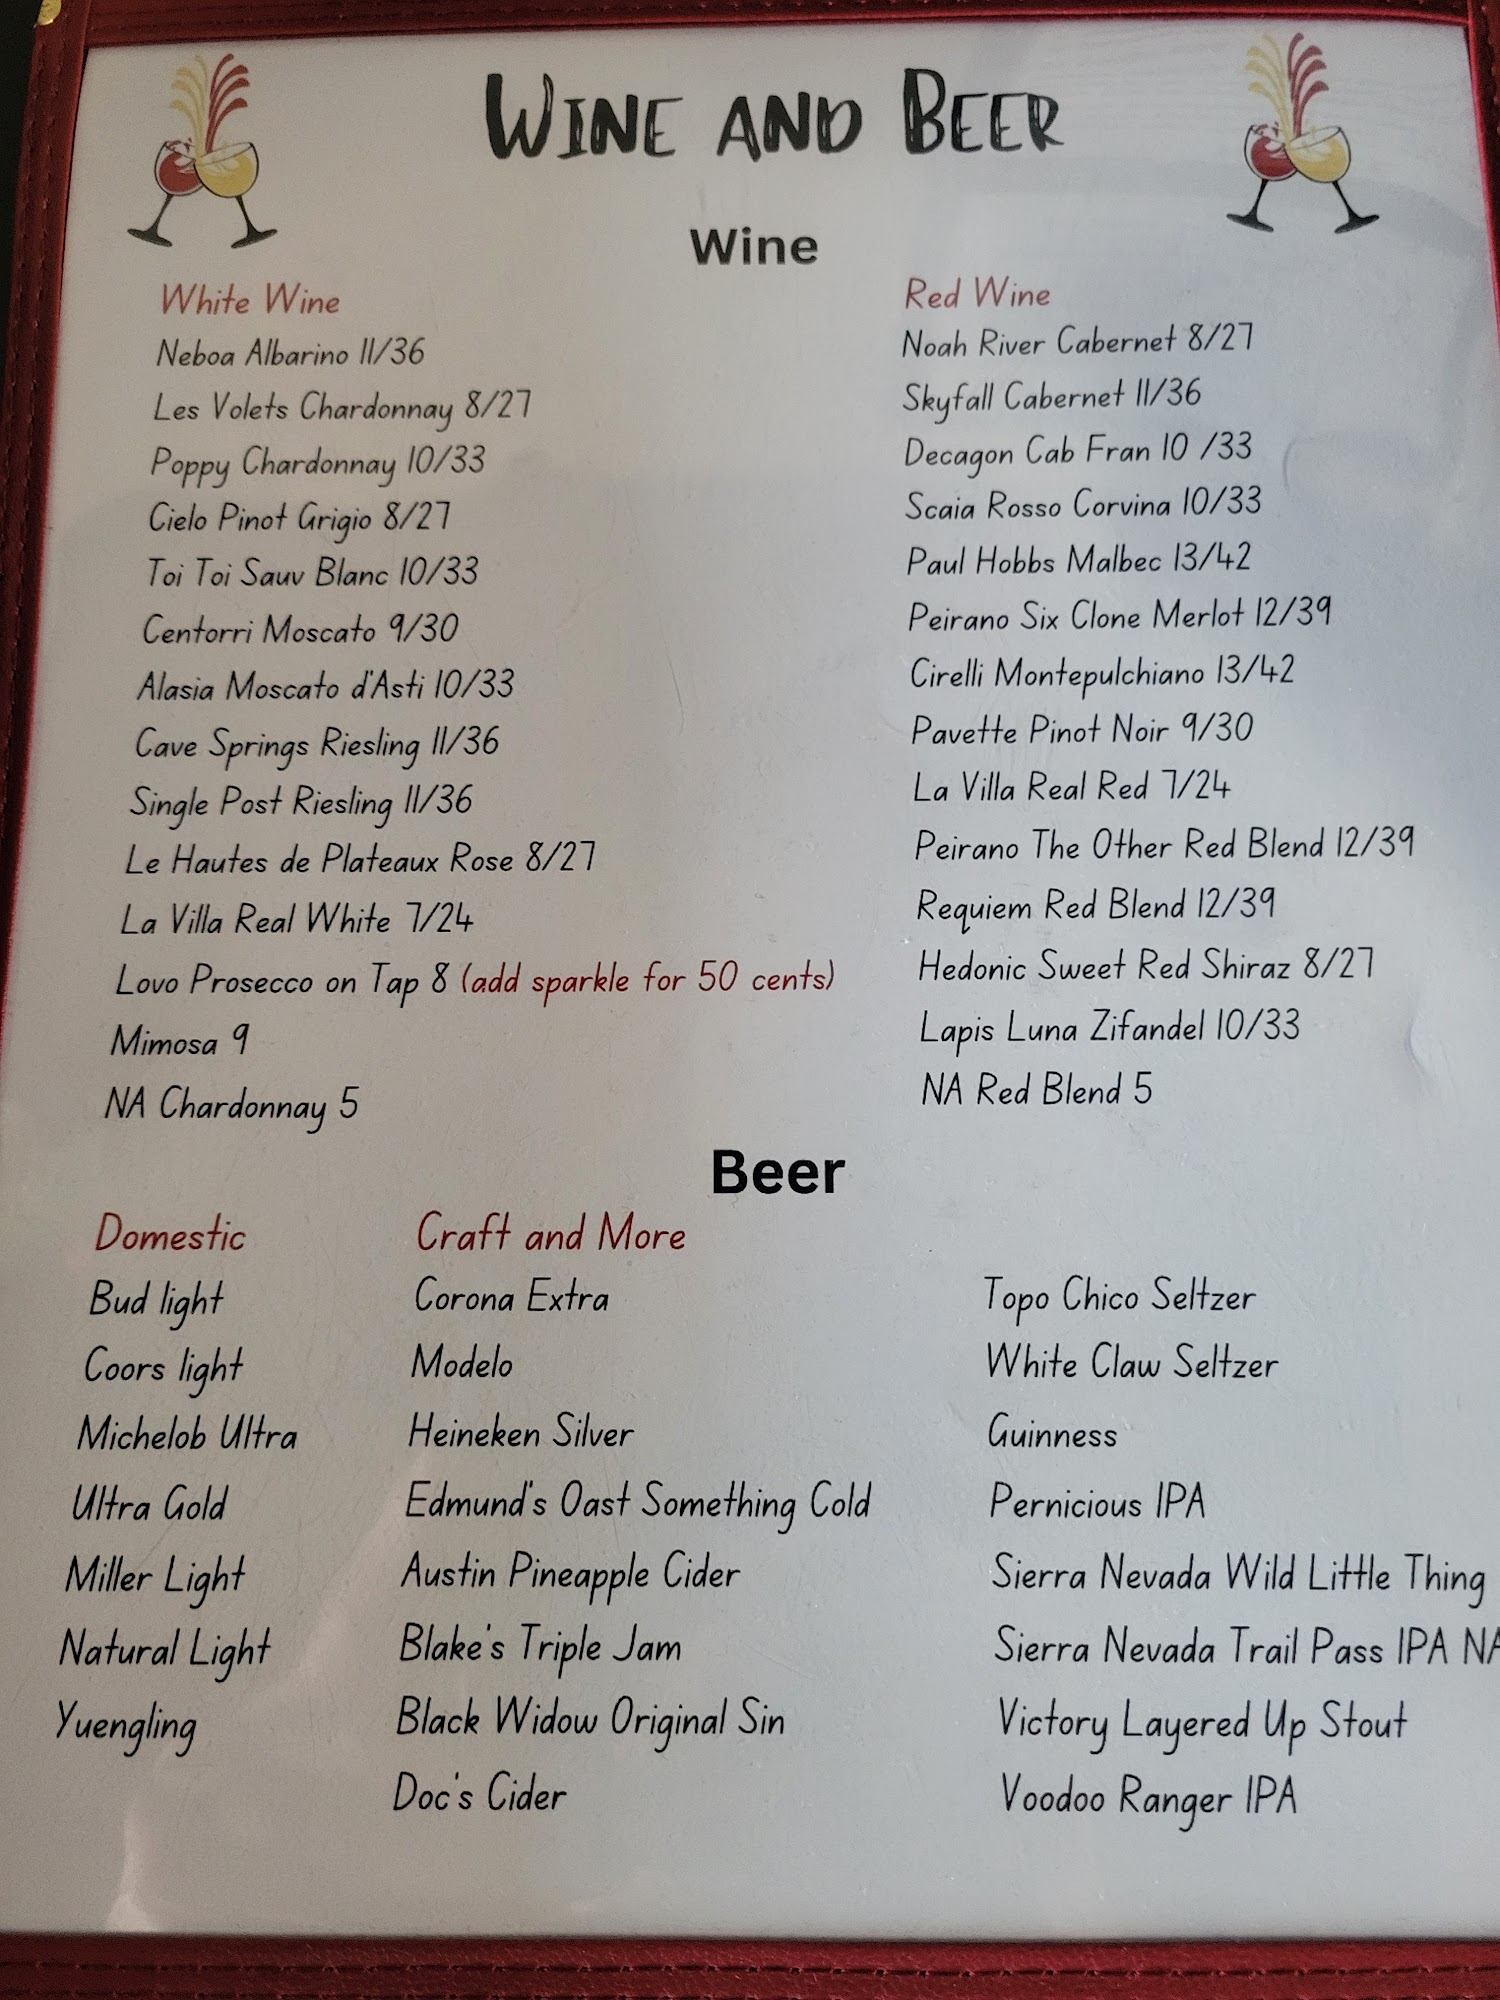 Wine and Beer
Wine
White Wine
Neboa Albarino 11/36
Les Volets Chardonnay 8/27
Poppy Chardonnay 10/33
Cielo Pinot Grigio 8/27
Toi Toi Sauv Blanc 10/33
Centorri Moscato 9/30
Alasia Moscato d'Asti 10/33
Cave Springs Riesling 11/36
Single Post Riesling 11/36
Le Hautes de Plateaux Rose 8/27
La Villa Real White 7/24
Lovo Prosecco on Tap 8 (add sparkle for 50 cents)
Mimosa 9
NA Chardonnay 5
Red Wine
Noah River Cabernet 8/27
Skyfall Cabernet 11/36
Decagon Cab Fran 10 /33
Scaia Rosso Corvina 10/33
Paul Hobbs Malbec 13/42
Peirano Six Clone Merlot 12/39
Cirelli Montepulchiano 13/42
Pavette Pinot Noir 9/30
La Villa Real Red 7/24
Peirano The Other Red Blend 12/39
Requiem Red Blend 12/39
Hedonic Sweet Red Shiraz 8/27
Lapis Luna Zifandel 10/33
NA Red Blend 5
Beer
Domestic
Bud light
Coors light
Michelob Ultra
Ultra Gold
Miller Light
Natural Light
Yuengling
Craft and More
Corona Extra
Modelo
Heineken Silver
Edmund's Oast Something Cold
Austin Pineapple Cider
Blake's Triple Jam
Black Widow Original Sin
Doc's Cider
Topo Chico Seltzer
White Claw Seltzer
Guinness
Pernicious IPA
Sierra Nevada Wild Little Thing
Sierra Nevada Trail Pass IPA NA
Victory Layered Up Stout
Voodoo Ranger IPA